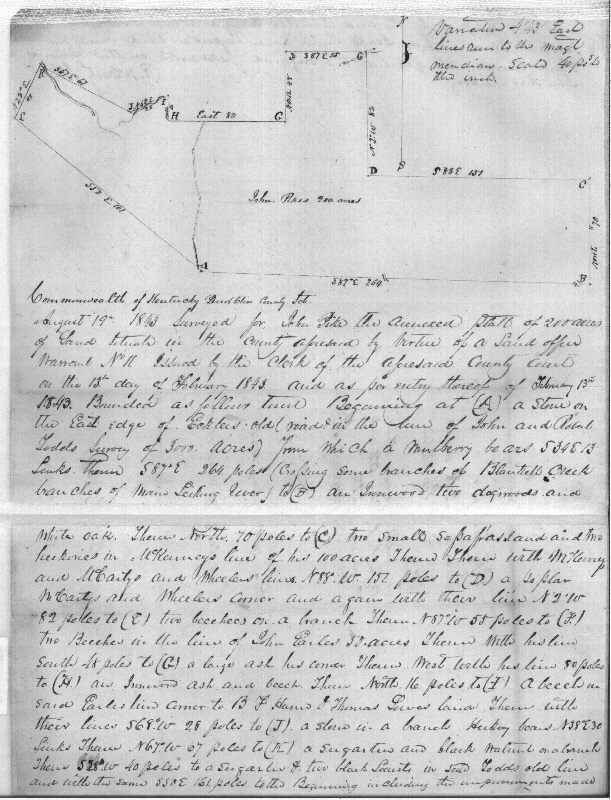 N
Variation 4°43 East
lines run to the magt
meridian. Scale 40 pos to
the inch.
S 87 E 55
G
North 48
N 2 W 82
K
S 67 E 67
I
H
East 80
G
D
S
S 88 E 137
C
S 50 E 161
John Pikes 200 acres
North 70
A
S 87°E 264
B
Commonwealth of Kentucky Pendleton County Sct.
August 19th 1843 Surveyed for John Pike the annexed platt of 200 acres
of Land situate in the County aforesaid by virtue of a Land office
Warrant No 11 Issued by the Clerk of the aforesaid County Court
on the 13th day of February 1843 and as per entry thereof of February 13th
1843. Bounded as follows Beginning at (A) a Stone on
the East edge of Ecklers old (road) in the line of John and Robert
Todds Survey of 3000 Acres) from which a mulberry bears S 34 E 13
Links. thence S 87°E 264 poles (Crossing some branches of Creek
branches of Main Licking river) to (B) an Ironwood two dogwoods and
White oak. Thence North. 70 poles to (C) two small Sasafras and two
hickories in McKenneys line of his 100 acres Thence with McKenney
and McCartys and Wheelers line N 88°. W. 137 poles to (D) a poplar
McCartys and Wheelers Corner and again with their line N 2°W
82 poles to (E) two beeches on a branch Thence N 87°W 55 poles to (F)
two Beeches in the line of John Earles 50. acres Thence with his line
South 48 poles to (G) a large ash his corner Thence. West with his line 80 poles
to (H) an Ironwood ash and beech. Thence North. 16 poles to (I) A beech in
said Earles line corner to B F Hume & Thomas land Thence with
their lines S 68°W 28 poles to (J). a stone in a branch Hickory bears N 38 E 30
Links Thence N 67°W 67 poles to (K) a Sugartree and black Walnut on a branch
Thence S 28°W 40 poles to a Sugartree & two black Locusts in said Todds old line
and with the same S 50 E 161 poles to the Beginning including the improvements made